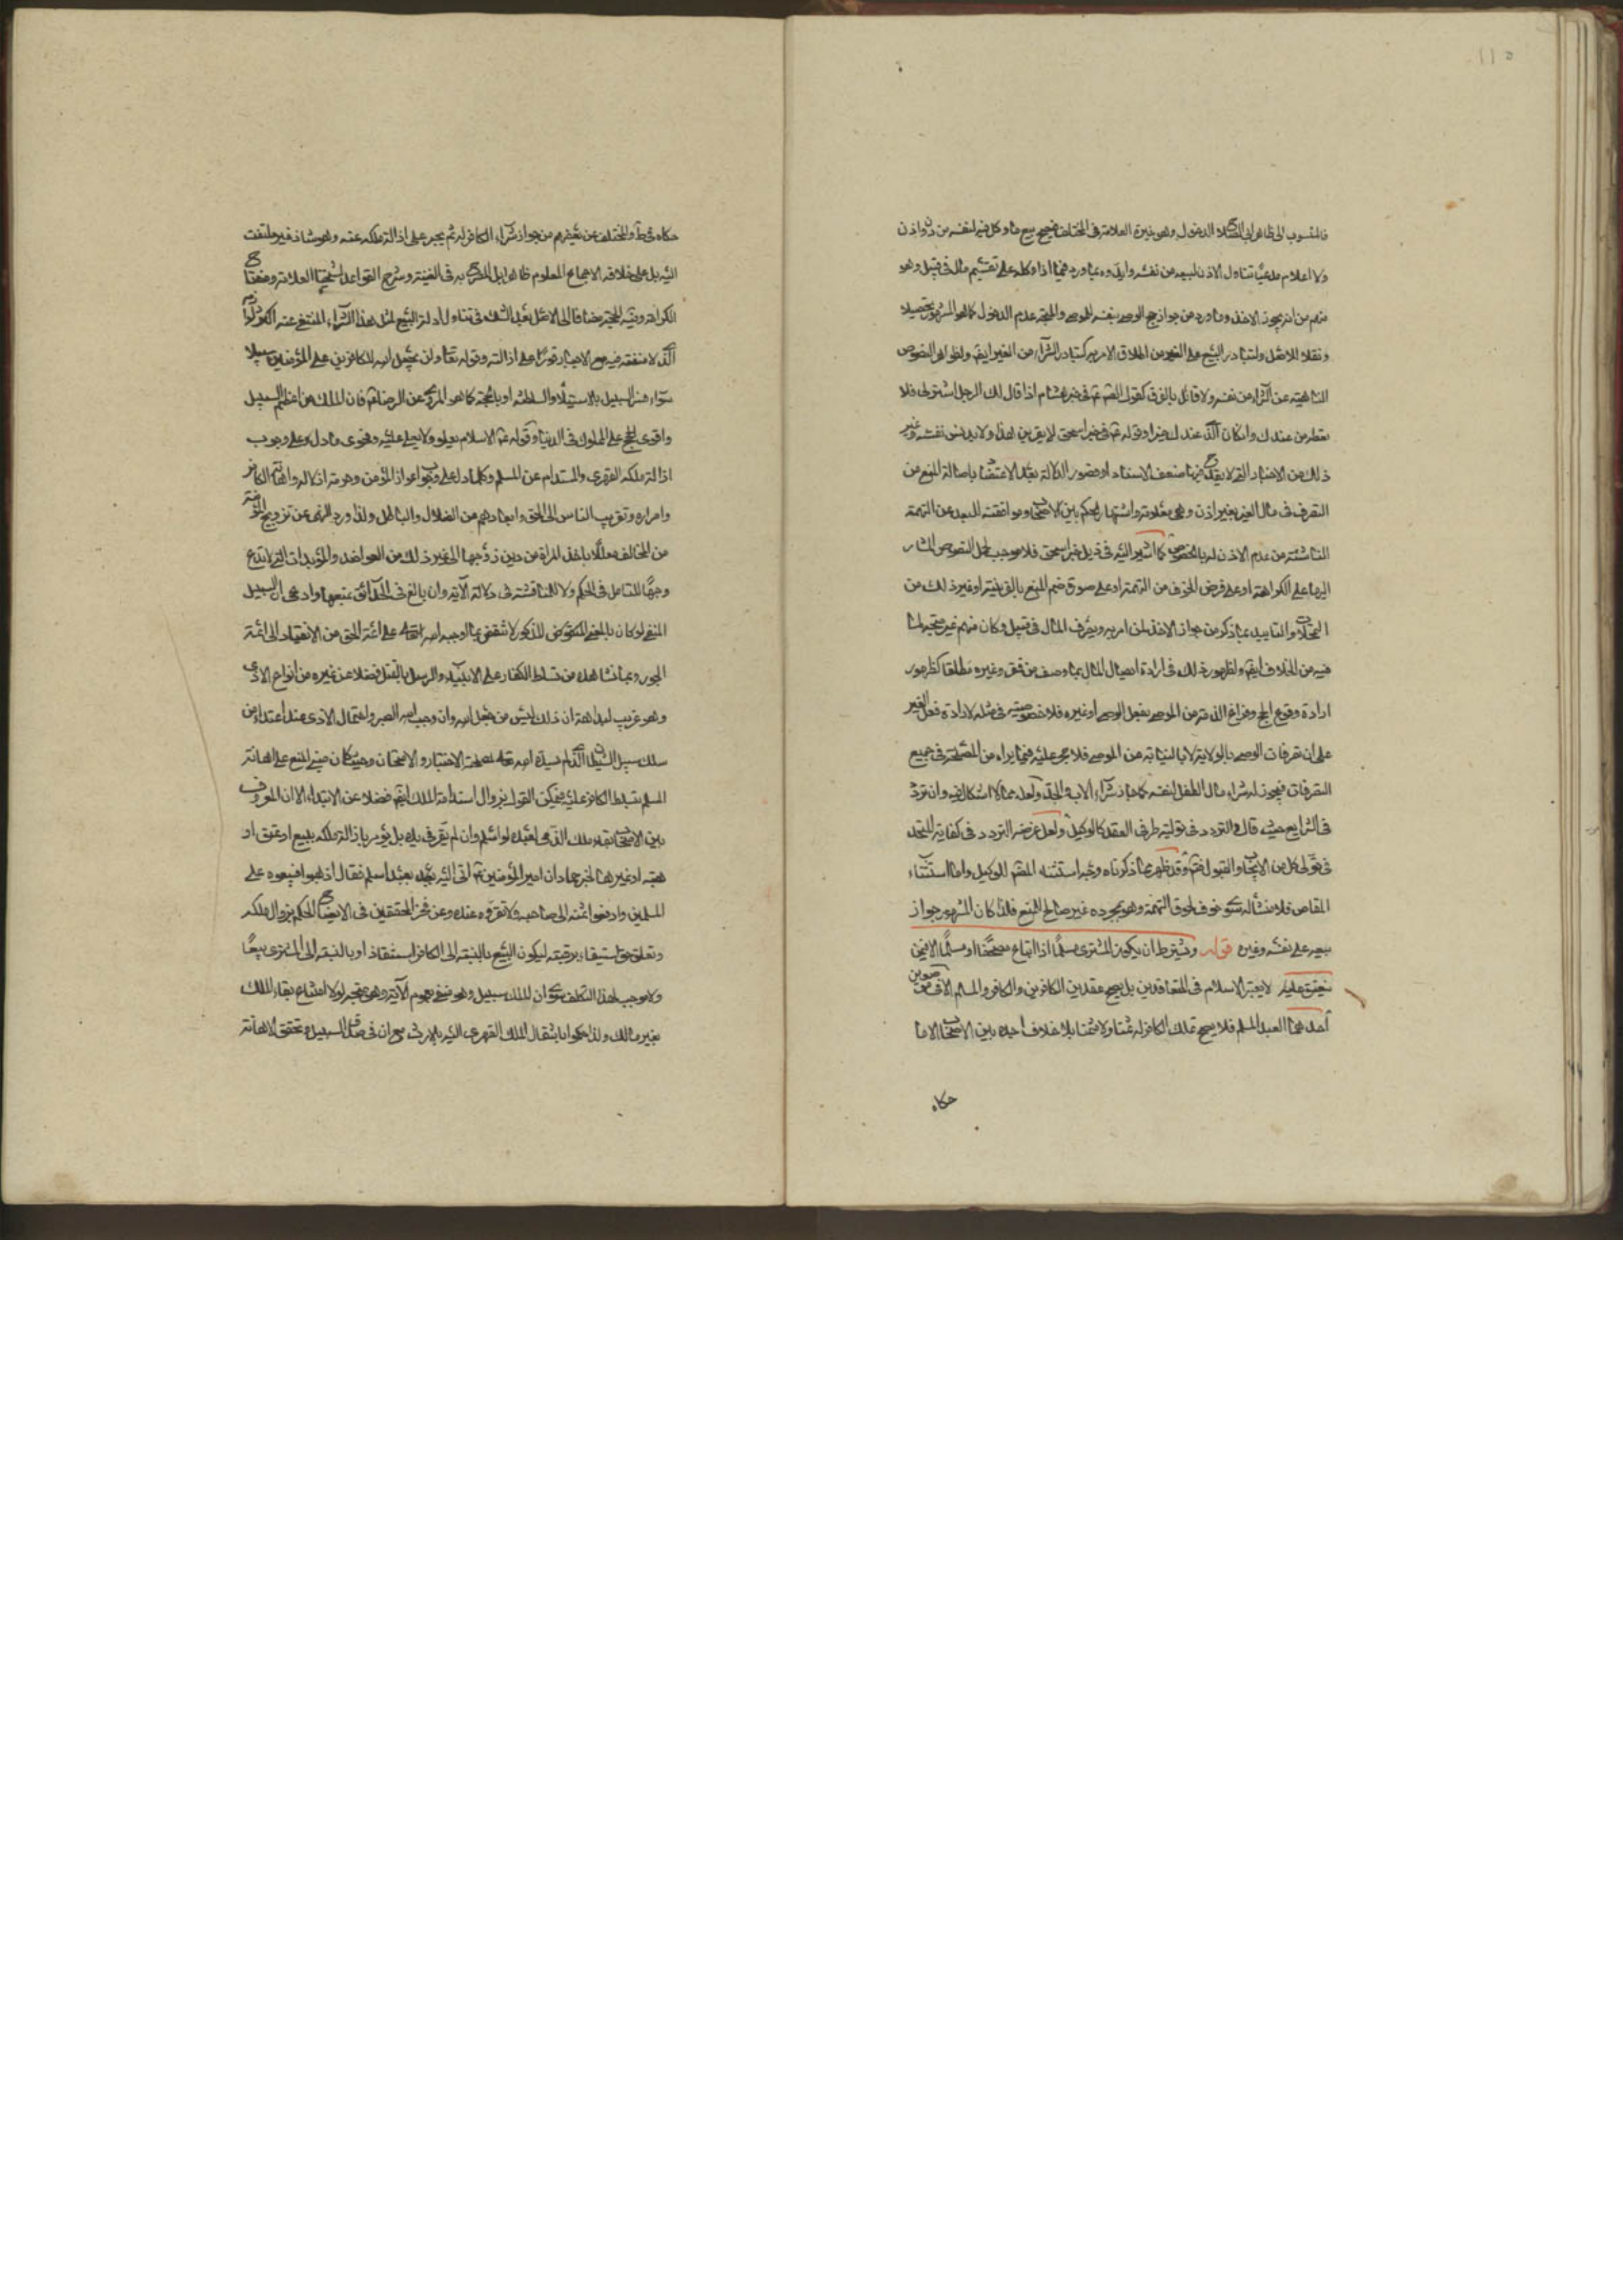 ١١٥
فالمنسوب الى ظاهر ابي الصلاح الدخول وهو خيرة العلامة في المختلف فيصح بيع ما وكل فيه لنفسه من دون اذن
ولا اعلام مدعيا تناول الاذن لبيعه من نفسه وايدوه بما ورد فيما اذا وكله على تقسيم مال في قبيل وهو
منهم من انه يجوز الاخذ وما ورد من جواز حج الوصي بنفسه للموصي والمتجه عدم الدخول كما هو المشهور تحصيلا
ونقلا للاصل ولتبادر البيع على الغير من اطلاق الامر به كتبادر الشراء من الغير ايضا ولظواهر النصوص
الناهية عن الشراء من نفسه ولا قائل بالفرق كقول الصم في خبر هشام اذا قال لك الرجل اشتر لي فلا
تعطه من عندك وان كان الذي عندك خيرا وقوله في خبر اسحق لا يقربن هذا ولا يدنس نفسه وغير
ذلك من الاخبار التي لا يقدح فيها ضعف الاسناد او قصور الدلالة بعد الاعتضاد باصالة المنع من
التصرف في مال الغير بغير اذن وهي معلومة واشتهار الحكم بين الاصحاب وموافقته للبعد عن التهمة
الناشئة من عدم الاذن له بالخصوص كما اشير اليه في ذيل خبر اسحق فلا موجب لحمل النصوص المشار
اليها على الكراهة او على فرض الخوف من التهمة او على صورة فهم المنع بالقرينة او غير ذلك من
المحملات والتاييد بما ذكر من جواز الاخذ لمن امر به ويصرف المال في قبيل وكان منهم غير متجه لما
فيه من الخلاف ايضا ولظهور ذلك في ارادة ايصال المال بما وصف من فقر وغيره مطلقا كظهور
ارادة وقوع الحج وفراغ الذمة من الموصي بفعل الوصي او غيره فلا خصوصية في مثله لارادة فعل الغير
على ان تصرفات الوصي بالولاية لا بالنيابة عن الموصي فلا حجر عليه فيما يراه من المصلحة في جميع
التصرفات فيجوز له شراء مال الطفل لنفسه كما جاز شراء الاب والجد ولعله مما لا اشكال فيه وان تردد
في الشرايع حيث قال والتردد في توليته طرفي العقد كالوكيل ولعل غرضه التردد في كفاية المتحد
في تولي كل من الايجاب والقبول فتم وقد ظهر مما ذكرناه وجه استثناء المصم للوكيل واما استثناء
المقاص فلا منشأ له سوى خوف لحوق التهمة وهو بمجرده غير صالح للمنع فلذا كان المشهور جواز
بيعه على نفسه وغيره قوله ويشترط ان يكون المشتري مسلما اذا ابتاع مصحفا او مسلما الا فيمن
ينعتق عليه لا يعتبر الاسلام في المتعاقدين بل يصح عقد بين الكافرين والكافر والمسلم الا في صورتين
احدهما العبد المسلم فلا يصح تملك الكافر له ثمنا ولا مثمنا بلا خلاف اجده بين الاصحاب الا ما
حكاه
حكاه في ط والمختلف عن بعضهم من جواز شراء الكافر له ثم يجبر على ازالة ملكه عنه وهو شاذ غير ملتفت
اليه بل على خلافه الاجماع المعلوم ظاهرا بل المصرح به في الغنية وشرح القواعد لشيخنا العلامة
الذي لا منفعة فيه مع الاجبار فورا على ازالته وقوله تعا ولن يجعل الله للكافرين على المؤمنين سبيلا
سواء فسر السبيل بالاستيلاء والسلطنة او بالحجة كما هو المروي عن الرضا فان الملك من اعظم السبيل
واقوى الحجج على المملوك في الدنيا وقوله الاسلام يعلو ولا يعلى عليه وفحوى ما دل على وجوب
ازالة ملكه القهري والمستدام عن المسلم وكلما دل على وجوب اعزاز المؤمن وحرمة اذلاله واهانة الكافر
واضراره وتقريب الناس الى الحق وابعادهم عن الضلال والباطل ولذا ورد النهي عن تزويج المؤمنة
من المخالف معللا باخذ المراة من دين زوجها الى غير ذلك من العواضد والمؤيدات التي لا تدع
وجها للتامل في الحكم ولا للمناقشة في دلالة الآية وان بالغ في الحدائق بمنعها وادعى ان السبيل
المنفي لو كان بالمعنى المذكور لانتقض بما اوجبه الله تعالى على ائمة الحق من الانقياد الى ائمة
الجور وبما نشاهده من تسلط الكفار على الانبياء والرسل بالقتل فضلا عن غيره من انواع الاذى
وهو غريب لبداهة ان ذلك ليس من جعل الله وان وجب الله الصبر واحتمال الاذى عند اعتداء من
سلك سبيل الشيطان الذي لم يسده الله تعالى لمصلحة الاختبار والامتحان وحيث كان مبنى المنع على اهانة
المسلم بتسلط الكافر عليه فيمكن القول بزوال استدامة الملك ايضا فضلا عن الابتداء الا ان المعروف
بين الاصحاب بقاء ملك الذمي لعبده لو اسلم وان لم يقر في يده بل يؤمر بازالة ملكه ببيع او عتق او
هبة او غيرها لخبر حماد ان امير المؤمنين اتى اليه بعبد اسلم فقال اذهبوا فبيعوه على
المسلمين وادفعوا ثمنه الى صاحبه ولا تقروه عنده وعن فخر المحققين في الايضاح الحكم بزوال ملكه
وتعلق حق استيفاء برقبته ليكون البيع بالنسبة الى الكافر استنقاذا وبالنسبة الى المشتري بيعا
ولا موجب لهذا التكلف سوى ان الملك سبيل وهو منفي بعموم الآية وهو متجه لولا امتناع بقاء الملك
بغير مالك ولذا حكموا بانتقال الملك القهري اليه بالارث مع ان في صدق السبيل وتحقق الاهانة